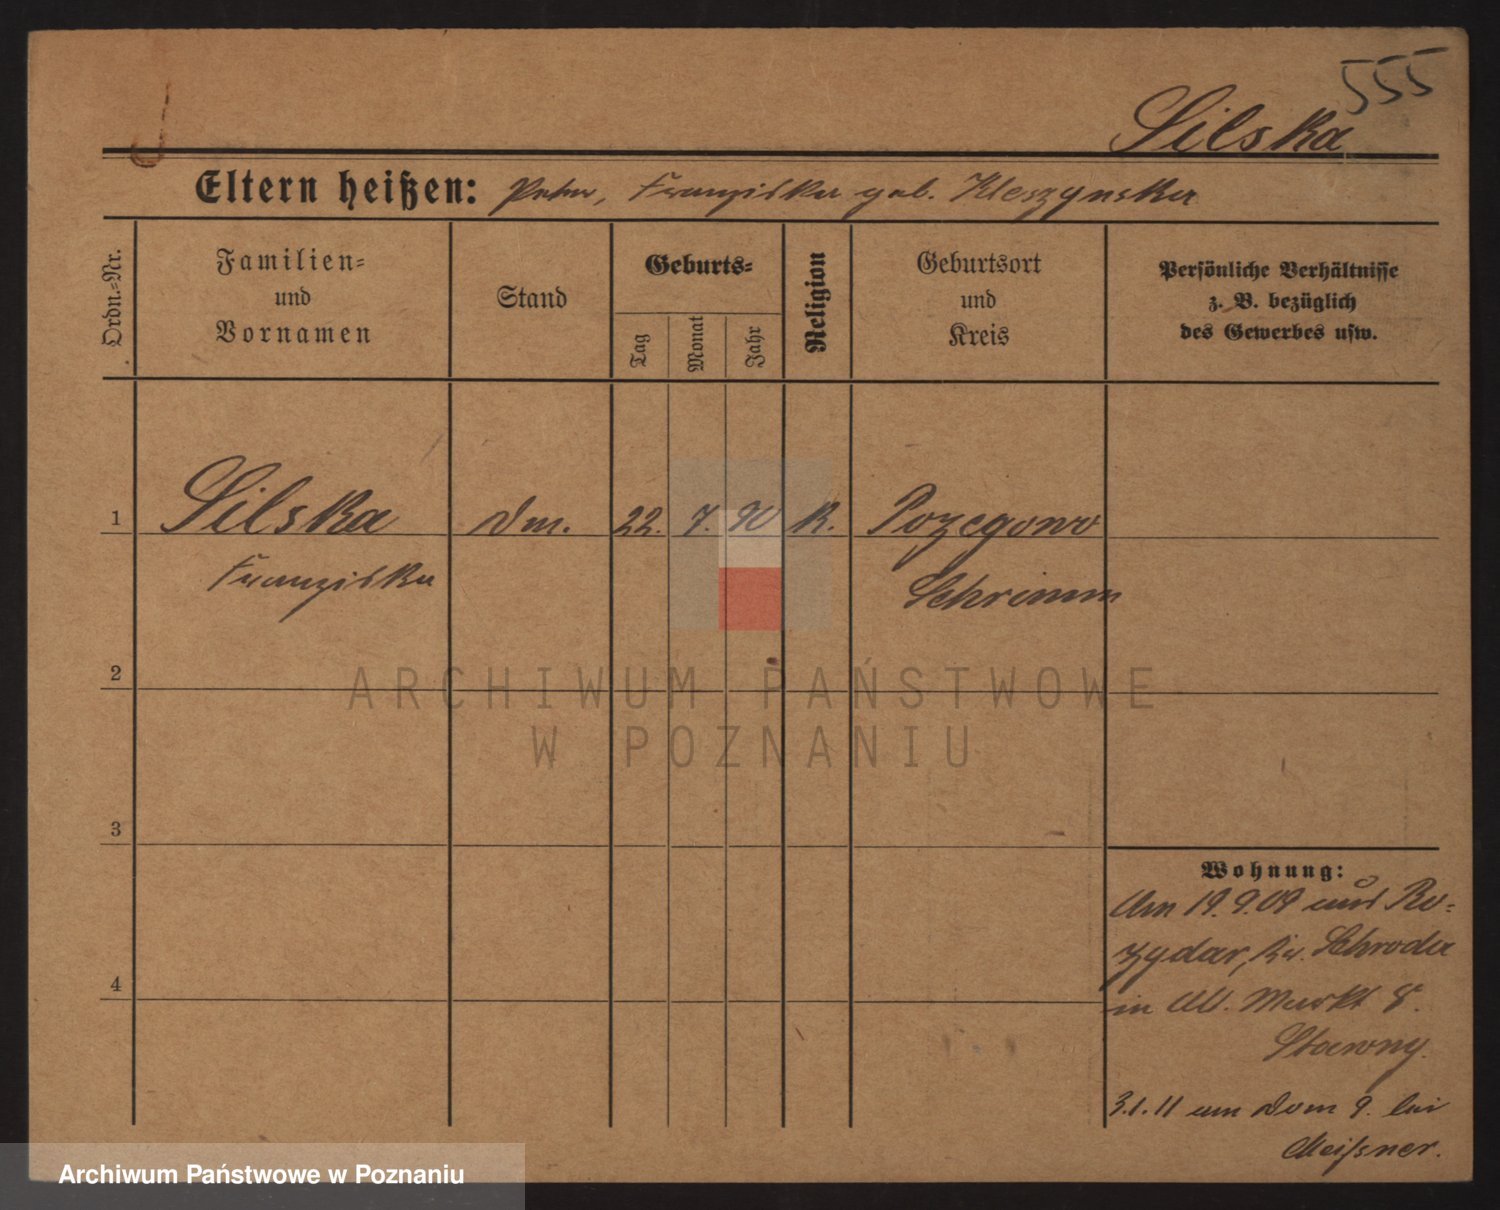 555
Silska
Eltern heißen: Peter, Franziska geb. Kleszynska
Ordn.-Nr.
Familien-
und
Vornamen
Stand
Geburts-
Tag
Monat
Jahr
Religion
Geburtsort
und
Kreis
Persönliche Verhältnisse
z. B. bezüglich
des Gewerbes usw.
1 Silska Dm. 22. 7. 90 K. Pozegowo
Franziska Schrimm
2
3
4
Wohnung:
Am 19.9.09 aus Ro-
zydar, Kr. Schroda
in Alt. Markt 8.
Stawny.
3.1.11 am Dom 9. bei
Meißner.
ARCHIWUM PAŃSTWOWE
W POZNANIU
Archiwum Państwowe w Poznaniu